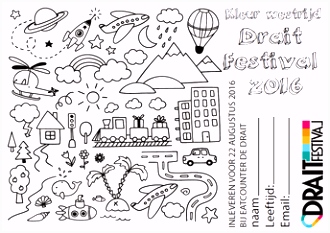 Kleur westrijd
Drait
Festival
2016
INLEVEREN VOOR 22 AUGUSTUS 2016
BIJ EATCOUNTER DE DRAIT
naam
Leeftijd:
Email:
DRAIT
FESTIVAL